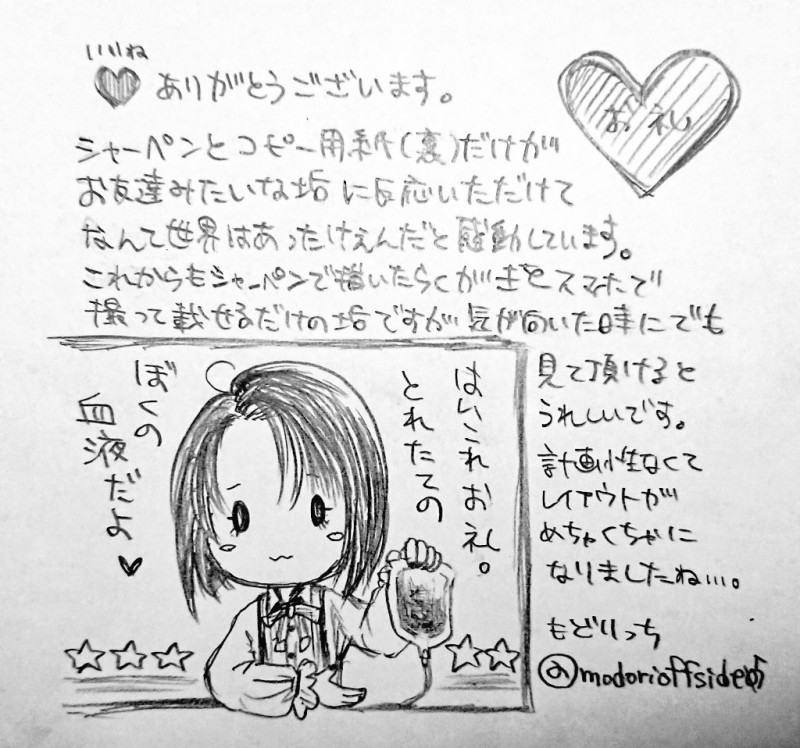 いいね
♥ありがとうございます。
お礼
シャーペンとコピー用紙(裏)だけが
お友達みたいな垢に反応いただけて
なんて世界はあったけぇんだと感動しています。
これからもシャーペンで描いたらくがきをスマホで
撮って載せるだけの垢ですが気が向いた時にでも
見て頂けると
うれしいです。
計画性なくて
レイアウトが
めちゃくちゃに
なりましたね…。
もどりっち
@modorioffside
はいこれお礼。
とれたての
ぼくの
血液だよ♥